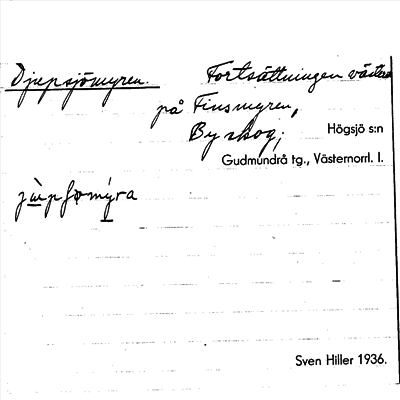 Djupsjömyren. Fortsättningen västra
på Finsmyren,
By skog; Högsjö s:n
Gudmundrå tg., Västernorrl. l.
Sven Hiller 1936.